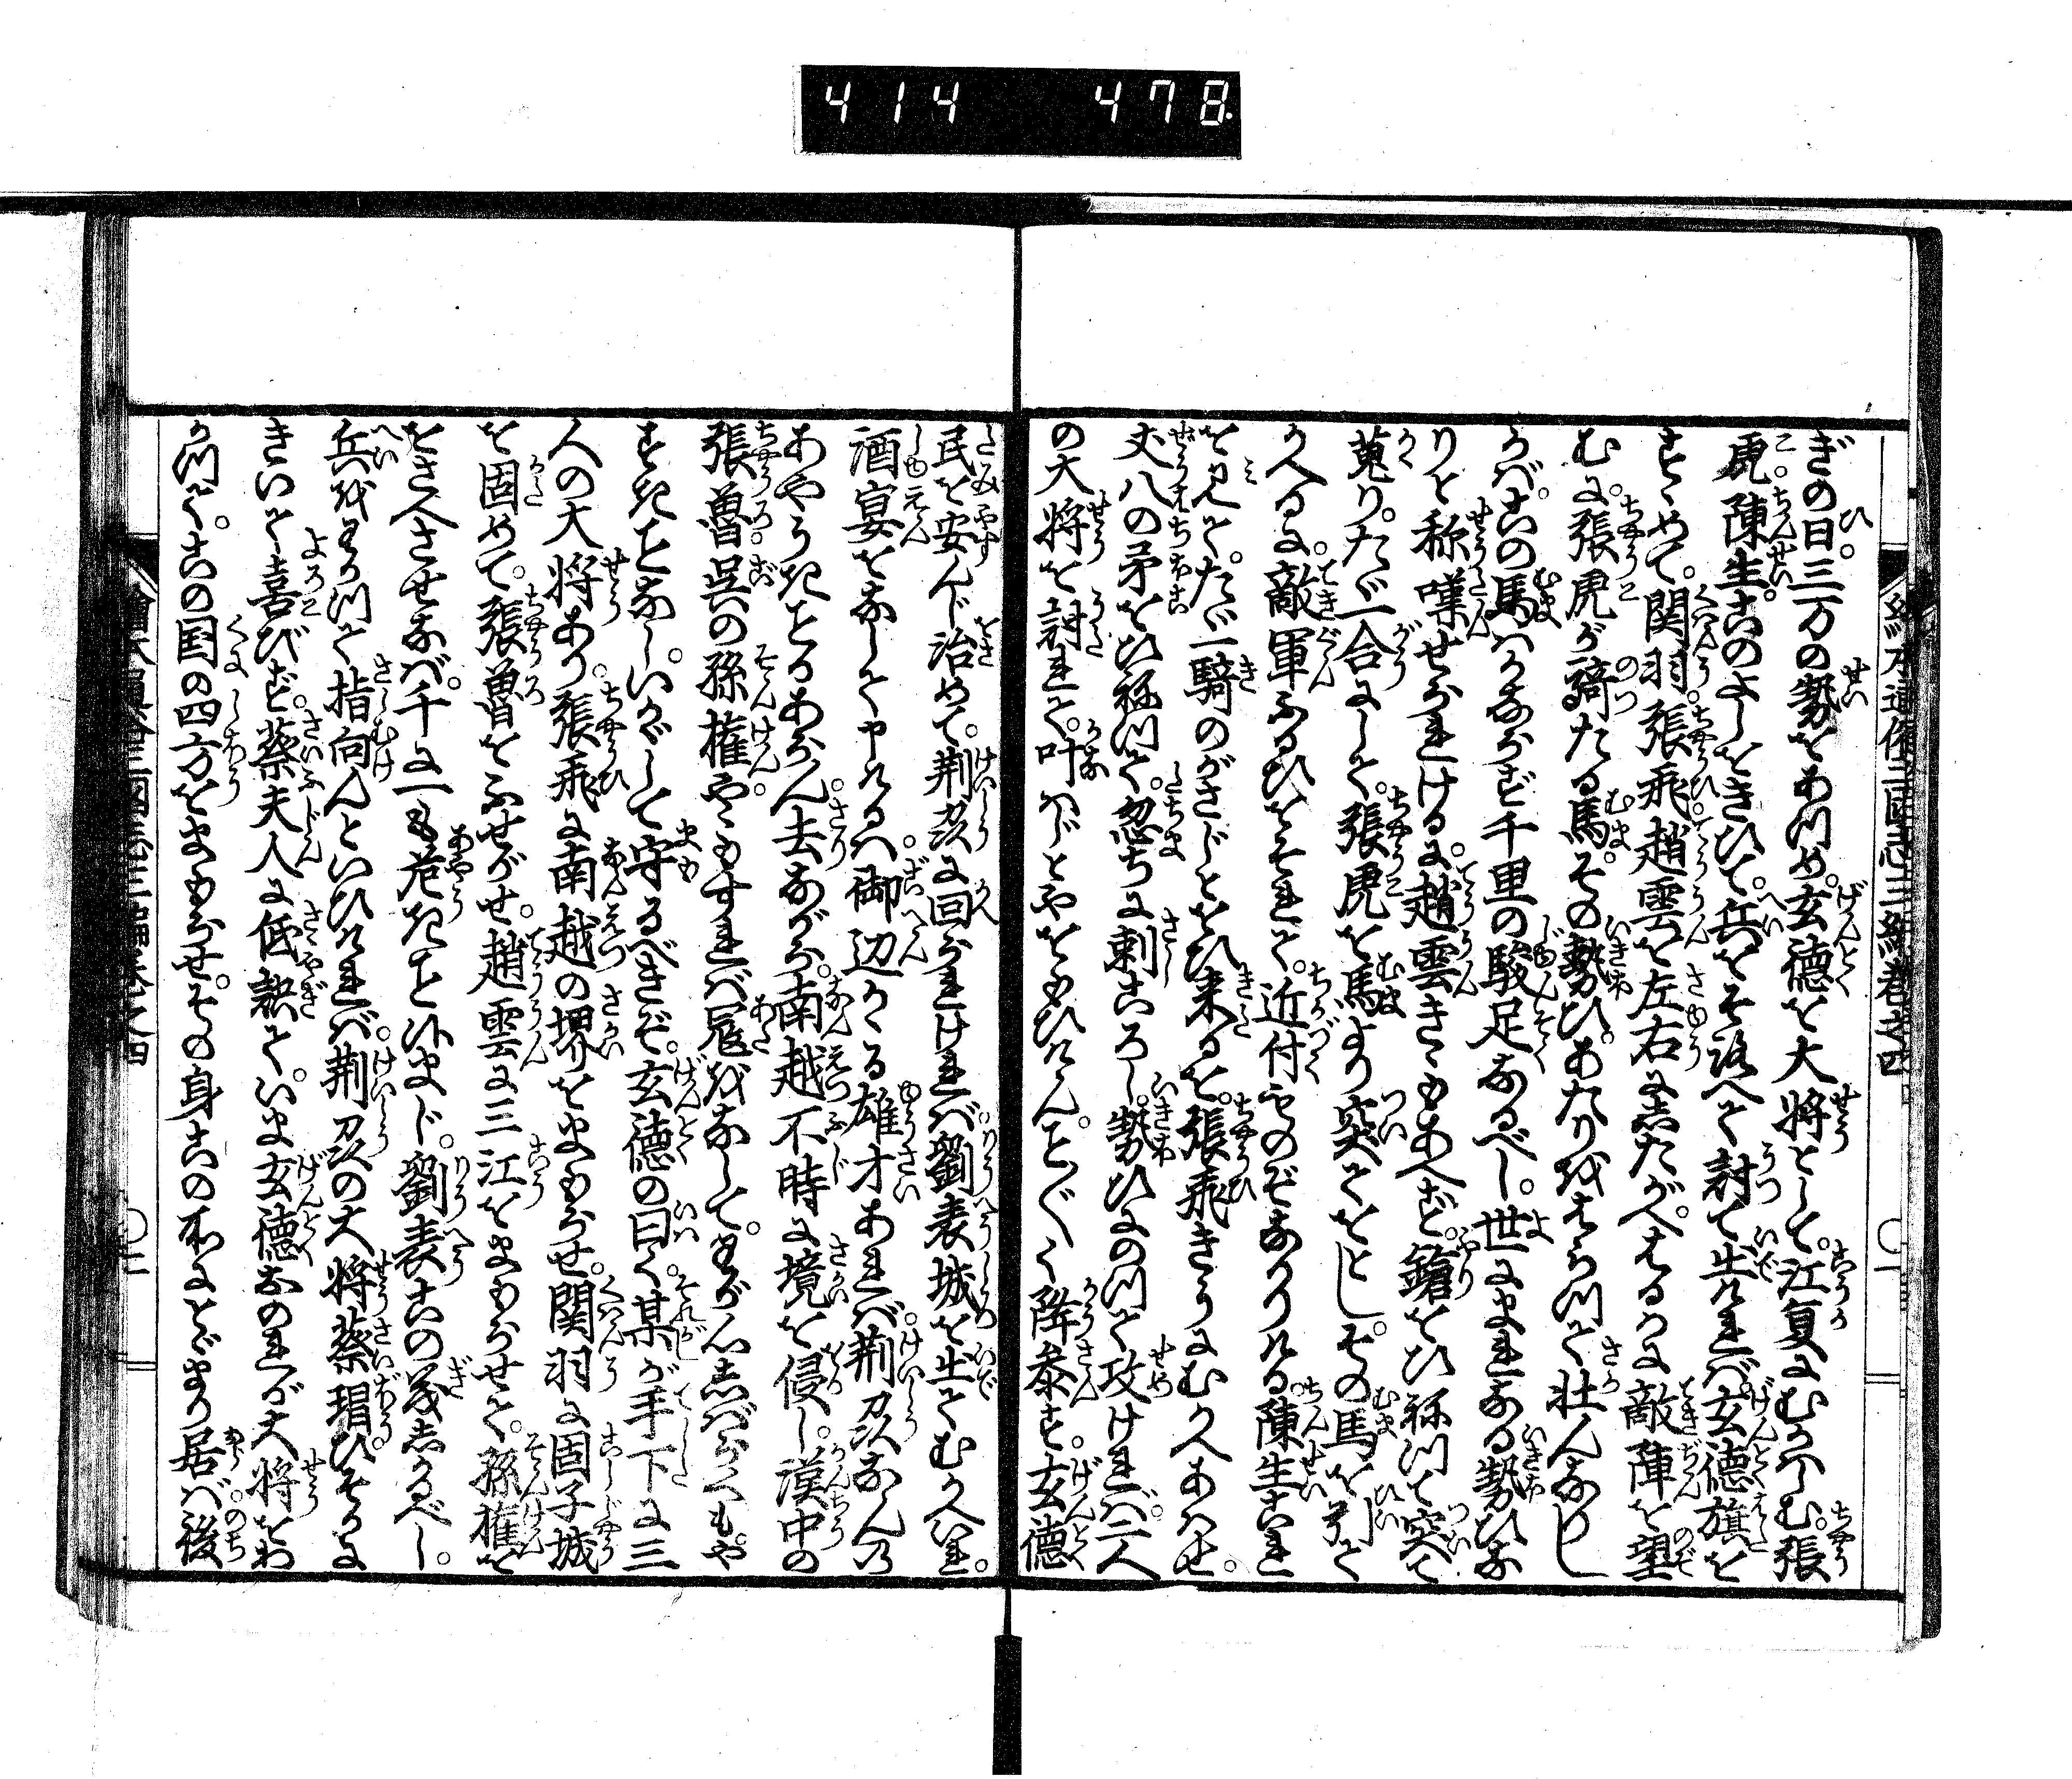 414 478
ぎの日。三万の勢をあつめ。玄徳を大将として。江夏にむかはしむ。張
虎。陳生。このよしをきひて。兵をそろへて討て出ければ。玄徳旗を
すゝめて。関羽。張飛。趙雲を左右にしたがへ。はるかに敵陣を望
む。に張虎が騎たる馬。その勢ひ。あたりをはらつて壮んなりし
かば。この馬はかならず千里の駿足なるべし。世にまれなる勢ひな
りと称嘆せられけるに。趙雲きゝもあへず。鎗をひねつて突て
蒐り。たゞ一合にして。張虎を馬より突ておとし。その馬を引て
かへるに。敵軍ふるひをそれて。近付ものぞなかりける。陳生これ
を見て。たゞ一騎のがさじとをひ来るを。張飛きうにむかへあはせ。
丈八の矛をひねつて。忽ちに刺ころし。勢ひにのつて攻ければ。二人
の大将を討れて。叶はじとやをもひけん。こと〴〵く降参す。玄徳
民を安んじ治めて。荊州に回られければ。劉表城を出てむかへいれ。
酒宴をなして申けるは。御辺かゝる雄才あれば。荊州なんの
あやうきことかあらん。去ながら。南越不時に境を侵し。漢中の
張魯。呉の孫権。やゝもすれば冦をなして。わが心しばらくもや
すきことなし。いかゞして守るべきぞ。玄徳の曰く。某が手下に三
人の大将あり。張飛に南越の堺をまもらせ。関羽に固子城
を固めて。張魯をふせがせ。趙雲に三江をまもらせて。孫権を
をさへさせなば。千に一も危きことはまじ。劉表この義しかるべし。
兵をわかつて指向んといひければ。荊州の大将蔡瑁。ひそかに
きいて喜びず。蔡夫人に低訣て。いま玄徳おのれが大将をわ
かつて。この国の四方をまもらせ。その身この所にとゞまり居ば。後